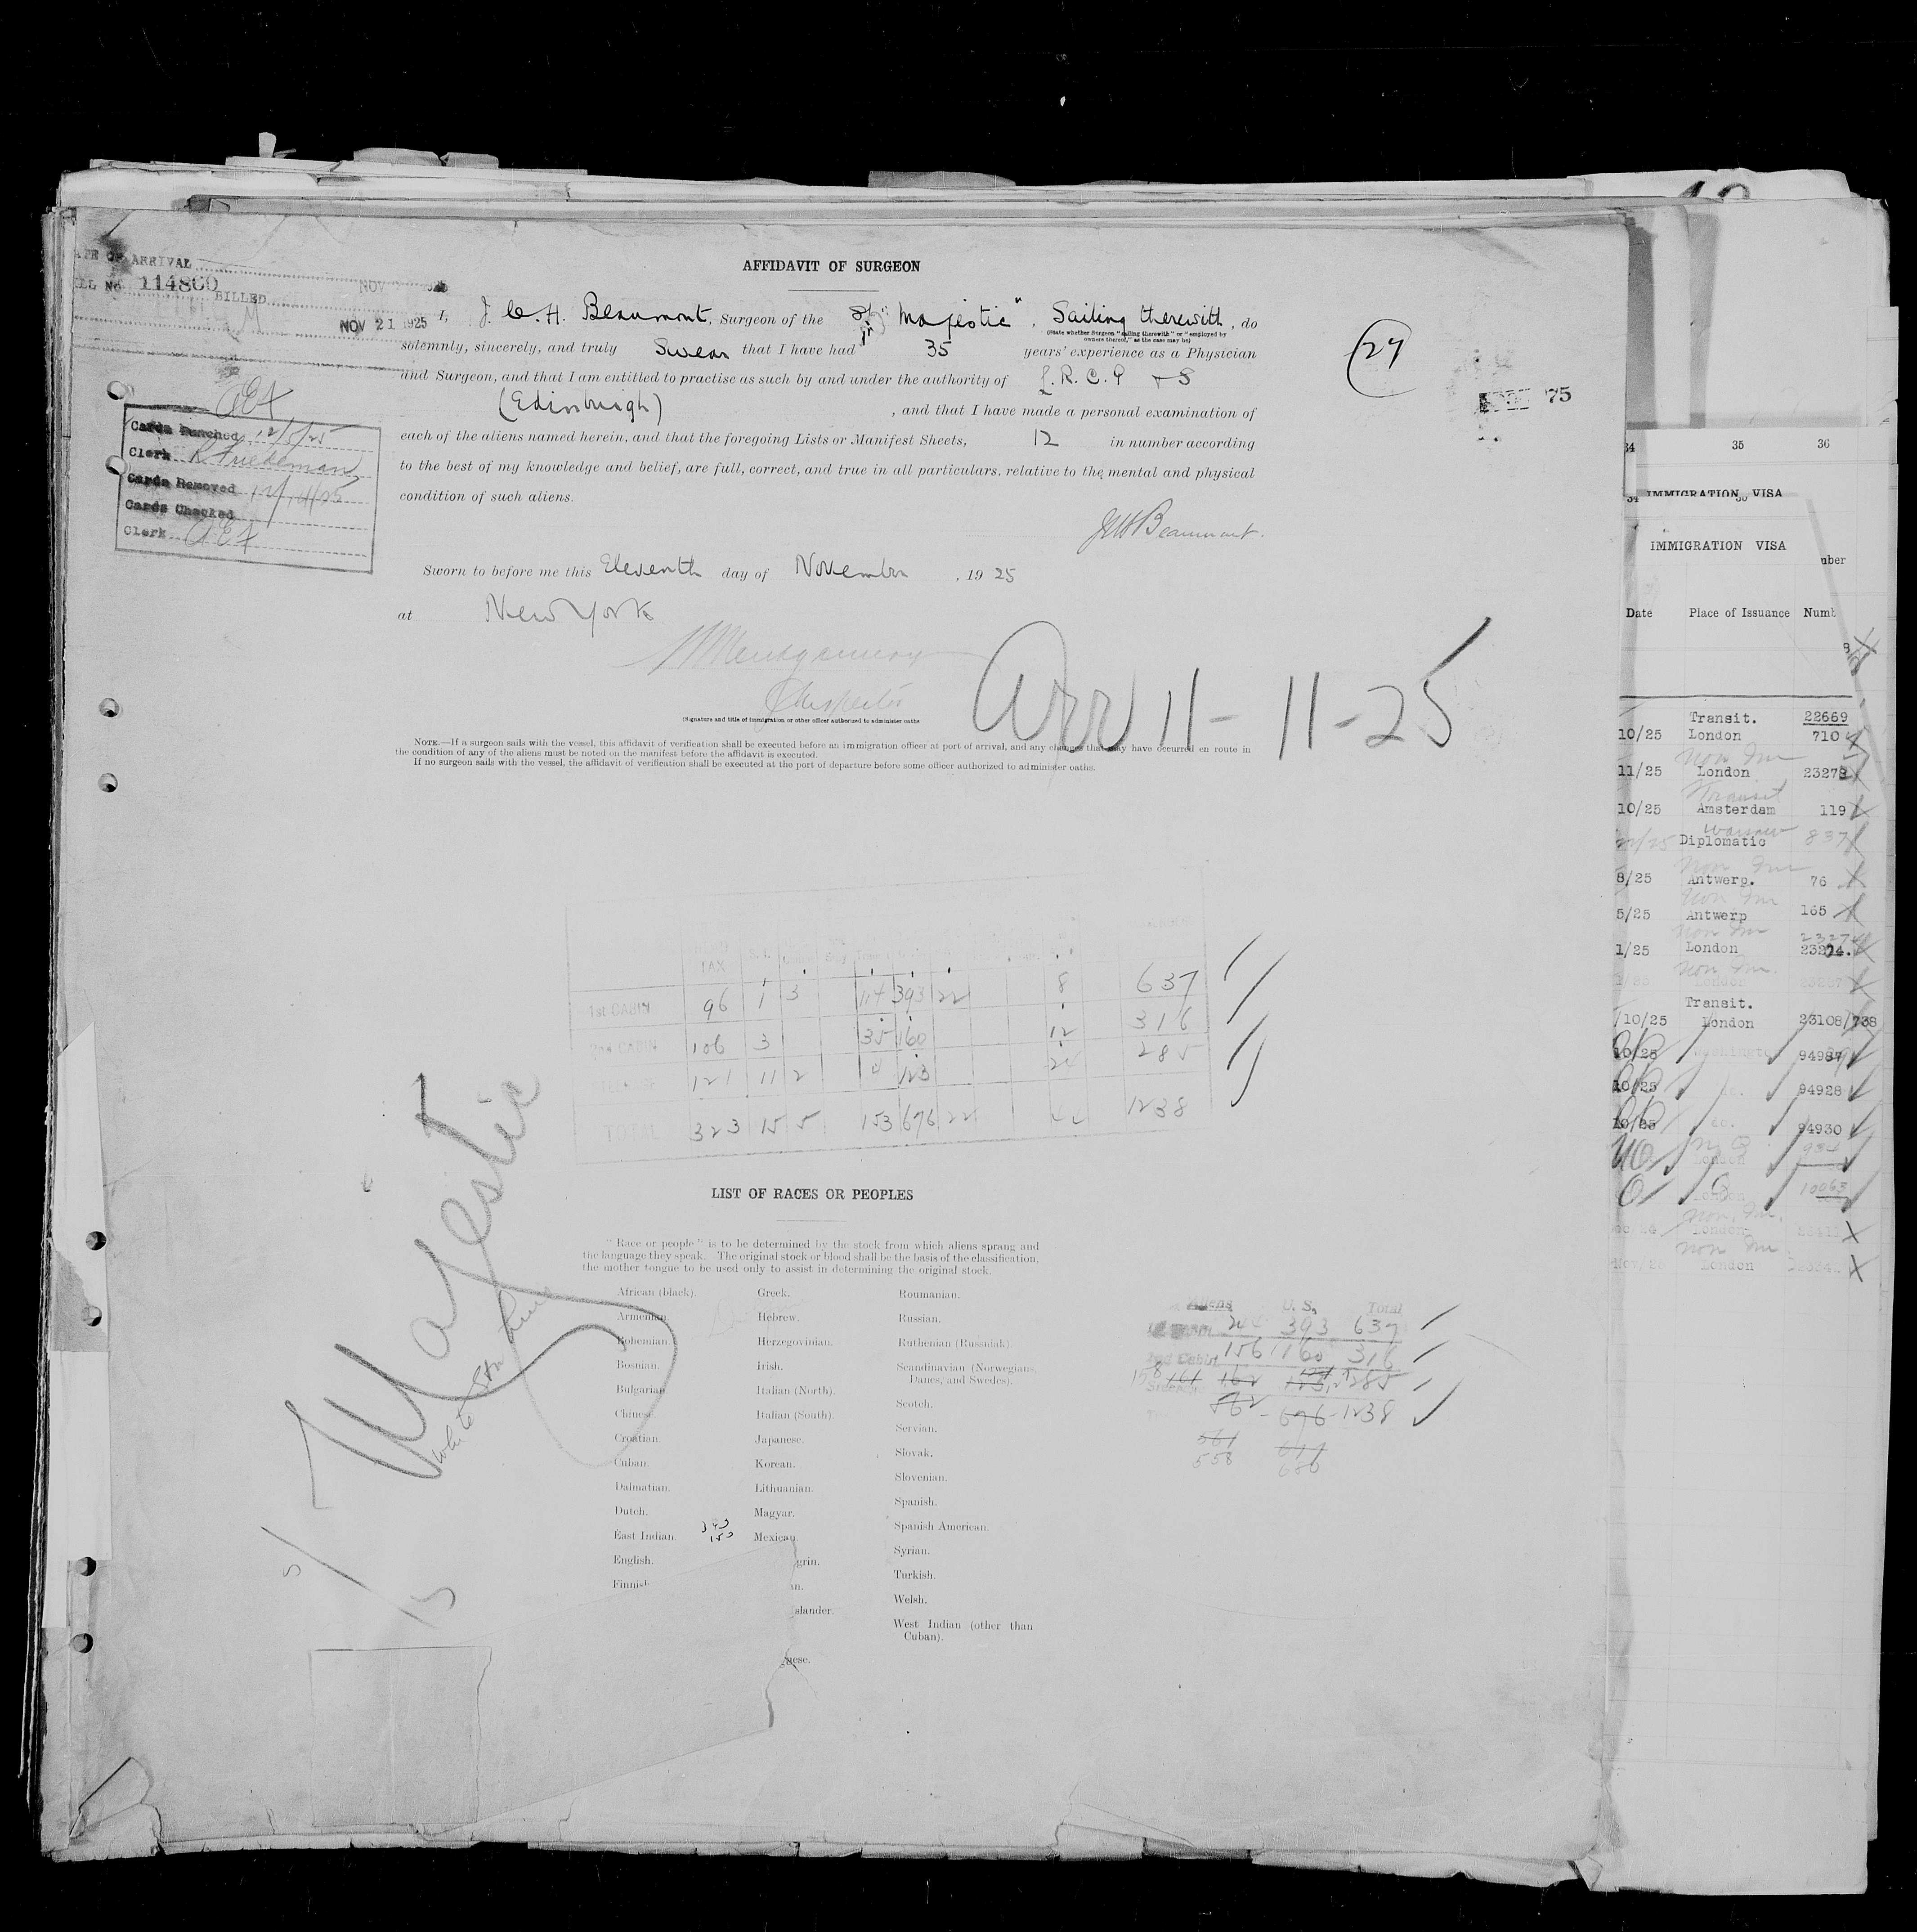 DATE OF ARRIVAL
BILL No. 114860
BILLED
NOV
NOV 21 1925
AFFIDAVIT OF SURGEON
I, J. C. H. Beaumont, Surgeon of the "Majestic", Sailing therewith, do
(State whether Surgeon "sailing therewith" or "employed by
owners thereof," as the case may be)
solemnly, sincerely, and truly Swear that I have had 35 years' experience as a Physician
and Surgeon, and that I am entitled to practise as such by and under the authority of L.R.C.P + S
(Edinburgh), and that I have made a personal examination of
each of the aliens named herein, and that the foregoing Lists or Manifest Sheets, 12 in number according
to the best of my knowledge and belief, are full, correct, and true in all particulars, relative to the mental and physical
condition of such aliens.
JCHBeaumont.
Sworn to before me this Eleventh day of November, 1925
at New York
Montgomery
Inspector
(Signature and title of immigration or other officer authorized to administer oaths
NOTE.—If a surgeon sails with the vessel, this affidavit of verification shall be executed before an immigration officer at port of arrival, and any changes that may have occurred en route in
the condition of any of the aliens must be noted on the manifest before the affidavit is executed.
If no surgeon sails with the vessel, the affidavit of verification shall be executed at the port of departure before some officer authorized to administer oaths.
27
75
Arr 11-11-25
Cards Punched 12/5/25
Clerk R Friedeman
Cards Removed
Cards Checked
Clerk
TAX
1st CABIN 96 1 3 114 393 22 8 637
2nd CABIN 106 3 35 160 12 316
121 11 2 4 123 24 285
TOTAL 323 15 5 153 676 22 1238
Majestic
White Star Line
LIST OF RACES OR PEOPLES
"Race or people" is to be determined by the stock from which aliens sprang and
the language they speak. The original stock or blood shall be the basis of the classification,
the mother tongue to be used only to assist in determining the original stock.
African (black).
Armenian.
Bohemian.
Bosnian.
Bulgarian
Chinese.
Croatian.
Cuban.
Dalmatian.
Dutch.
East Indian.
English.
Finnish
Greek.
Hebrew.
Herzegovinian.
Irish.
Italian (North).
Italian (South).
Japanese.
Korean.
Lithuanian.
Magyar.
Mexican
grin.
an.
slander.
uese.
Roumanian.
Russian.
Ruthenian (Russniak).
Scandinavian (Norwegians,
Danes, and Swedes).
Scotch.
Servian.
Slovak.
Slovenian.
Spanish.
Spanish American.
Syrian.
Turkish.
Welsh.
West Indian (other than
Cuban).
Aliens U. S. Total
244 393 637
2nd Cabin 156 160 316
158 161 162 285
562 - 676 - 1238
561
558 680
34 35 36
IMMIGRATION VISA
IMMIGRATION VISA
Date Place of Issuance Numb
Transit. 22669
10/25 London 710
Non Im
11/25 London 23278
Transit
10/25 Amsterdam 119
Warsaw
Diplomatic 837
Non Im
8/25 Antwerp. 76
Non Im
5/25 Antwerp 165
Non Im
1/25 London 23274.
Non Im.
London
Transit.
/10/25 London 23108/738
10/25 Washington 94987
10/25 do. 94928
10/25 do. 94930
London
London 10063
Non. Im.
London
Non Im
Nov/25 London